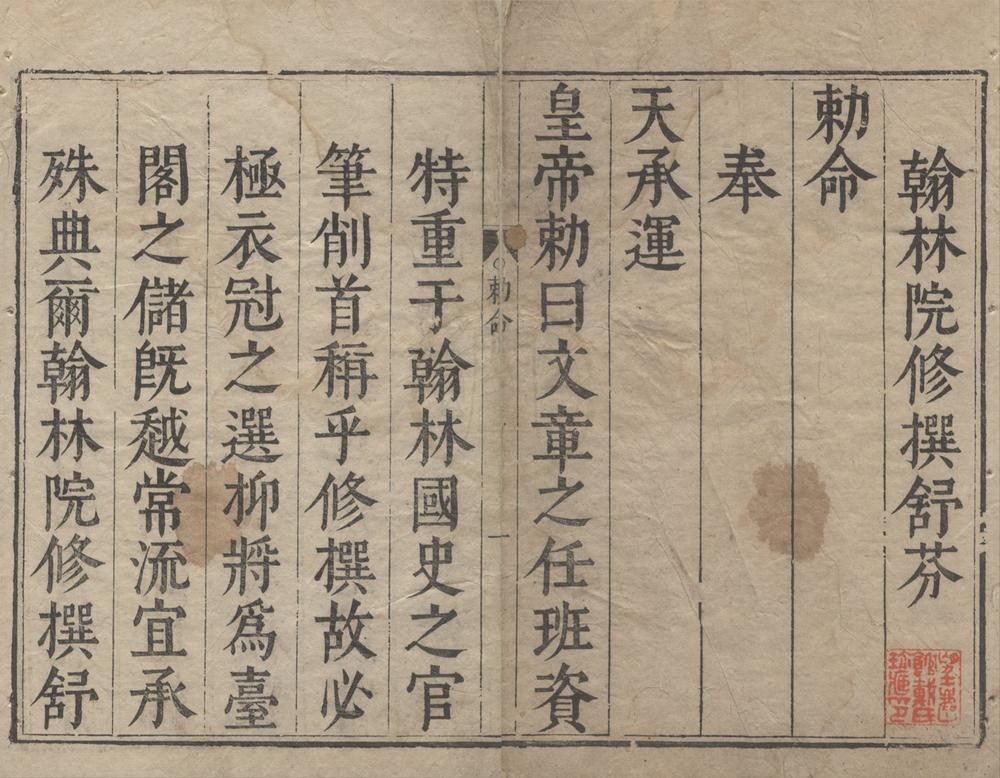 翰林院修撰舒芬
勅命
奉
天承運
皇帝勅曰文章之任班資
特重于翰林國史之官
筆削首稱乎修撰故必
極衣冠之選抑將爲臺
閣之儲旣越常流宜承
殊典爾翰林院修撰舒
勅命
一